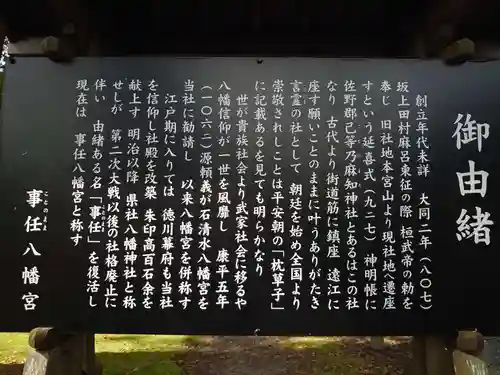 御由緒
創立年代未詳　大同二年（八〇七）
坂上田村麻呂東征の際　桓武帝の勅を
奉じ　旧社地本宮山より現社地へ遷座
すという延喜式（九二七）神明帳に
佐野郡己等乃麻知神社とあるはこの社
なり　古代より街道筋に鎮座　遠江に
座す願いことのままに叶うありがたき
言霊の社として　朝廷を始め全国より
崇敬されしことは平安朝の「枕草子」
に記載あるを見ても明らかなり
世が貴族社会より武家社会に移るや
八幡信仰が一世を風靡し　康平五年
（一〇六二）源頼義が石清水八幡宮を
当社に勧請し　以来八幡宮を併称す
江戸期に入りては　徳川幕府も当社
を信仰し社殿を改築　朱印高百石余を
献上す　明治以降　県社八幡神社と称
せしが　第二次大戦以後の社格廃止に
伴い　由緒ある名「事任」を復活し
現在は　事任八幡宮と称す
ことのまま
事任八幡宮